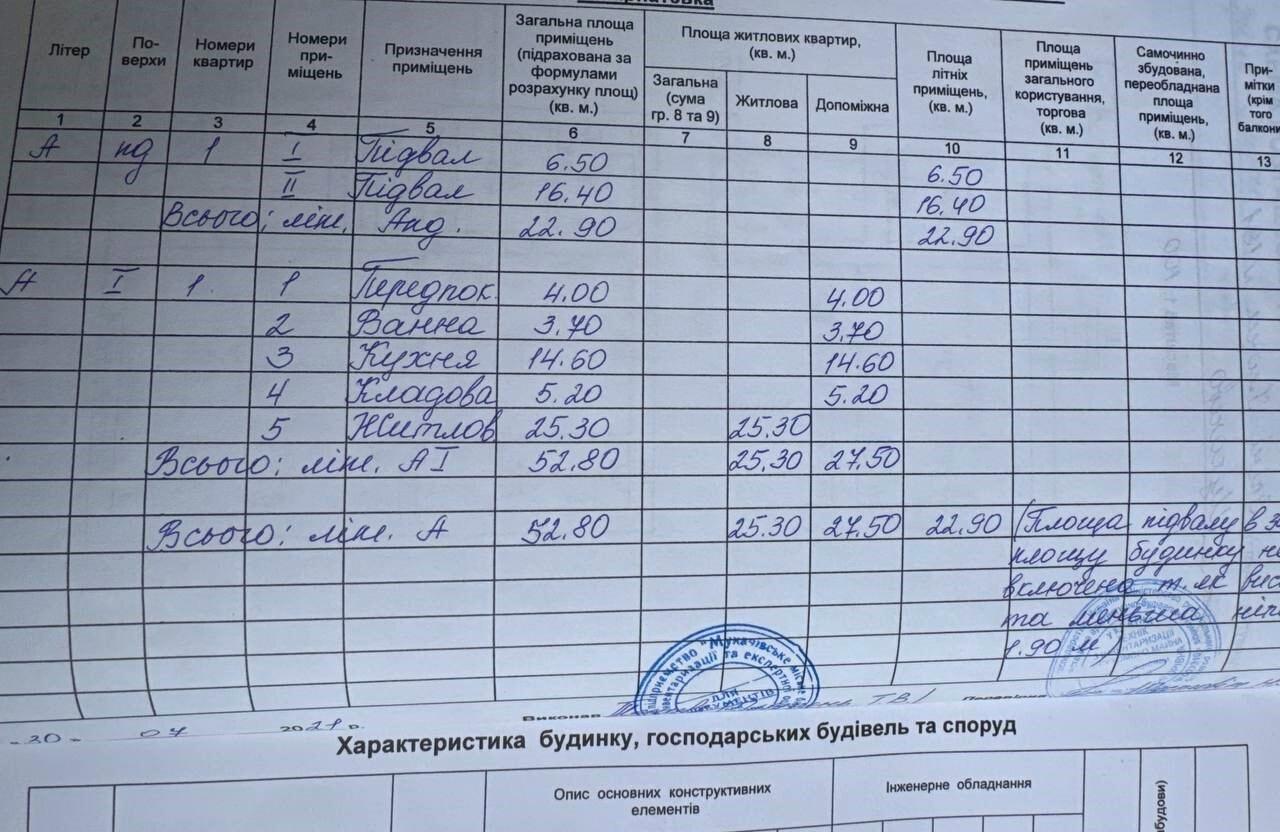 Літер По-верхи Номери квартир Номери при-міщень Призначення приміщень Загальна площа приміщень (підрахована за формулами розрахунку площ) (кв. м.) Площа житлових квартир, (кв. м.) Площа літніх приміщень, (кв. м.) Площа приміщень загального користування, торгова (кв. м.) Самочинно збудована, переобладнана площа приміщень, (кв. м.) При-мітки (крім того балкони
Загальна (сума гр. 8 та 9) Житлова Допоміжна
1 2 3 4 5 6 7 8 9 10 11 12 13
А пд 1 I Підвал 6.50 6.50
II Підвал 16.40 16.40
Всього; літ. Апд. 22.90 22.90
А I 1. 1 Передпок. 4.00 4.00
2 Ванна 3.70 3.70
3 Кухня 14.60 14.60
4 Кладова 5.20 5.20
5 Житлов 25.30 25.30
Всього; літ. АI 52.80 25.30 27.50
Всього; літ. А 52.80 25.30 27.50 22.90 (Площа підвалу в
площу будинку
включена т.як
та меньша
1.90 м)
Підприємство "Мукачівське міське
інвентаризації та експертної
для
документів
Виконав
30 07 2021 р.
Характеристика будинку, господарських будівель та споруд
Опис основних конструктивних елементів Інженерне обладнання